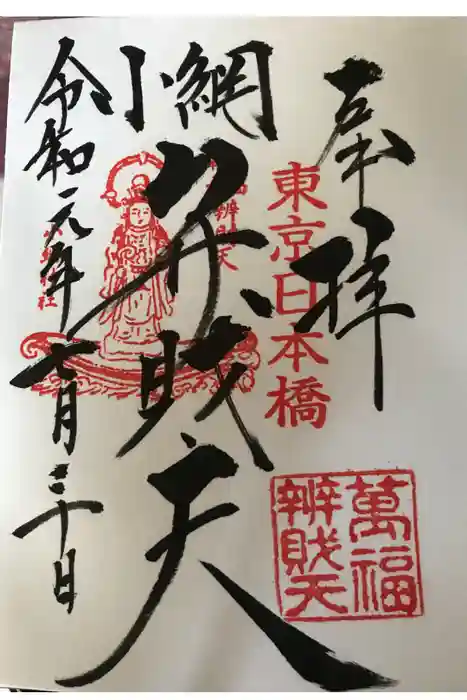 奉拝
東京日本橋
萬福
辨財天
小網
弁財天
令和元年七月三十日